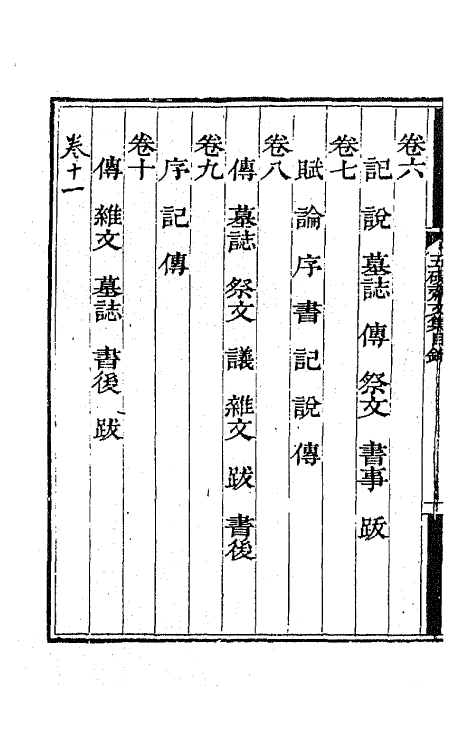 卷六
記 說 墓誌 傳 祭文 書事 跋
卷七
賦 論 序 書 記 說 傳
卷八
傳 墓誌 祭文 議 雜文 跋 書後
卷九
序 記 傳
卷十
傳 雜文 墓誌 書後 跋
卷十一
五硯齋文集目錄